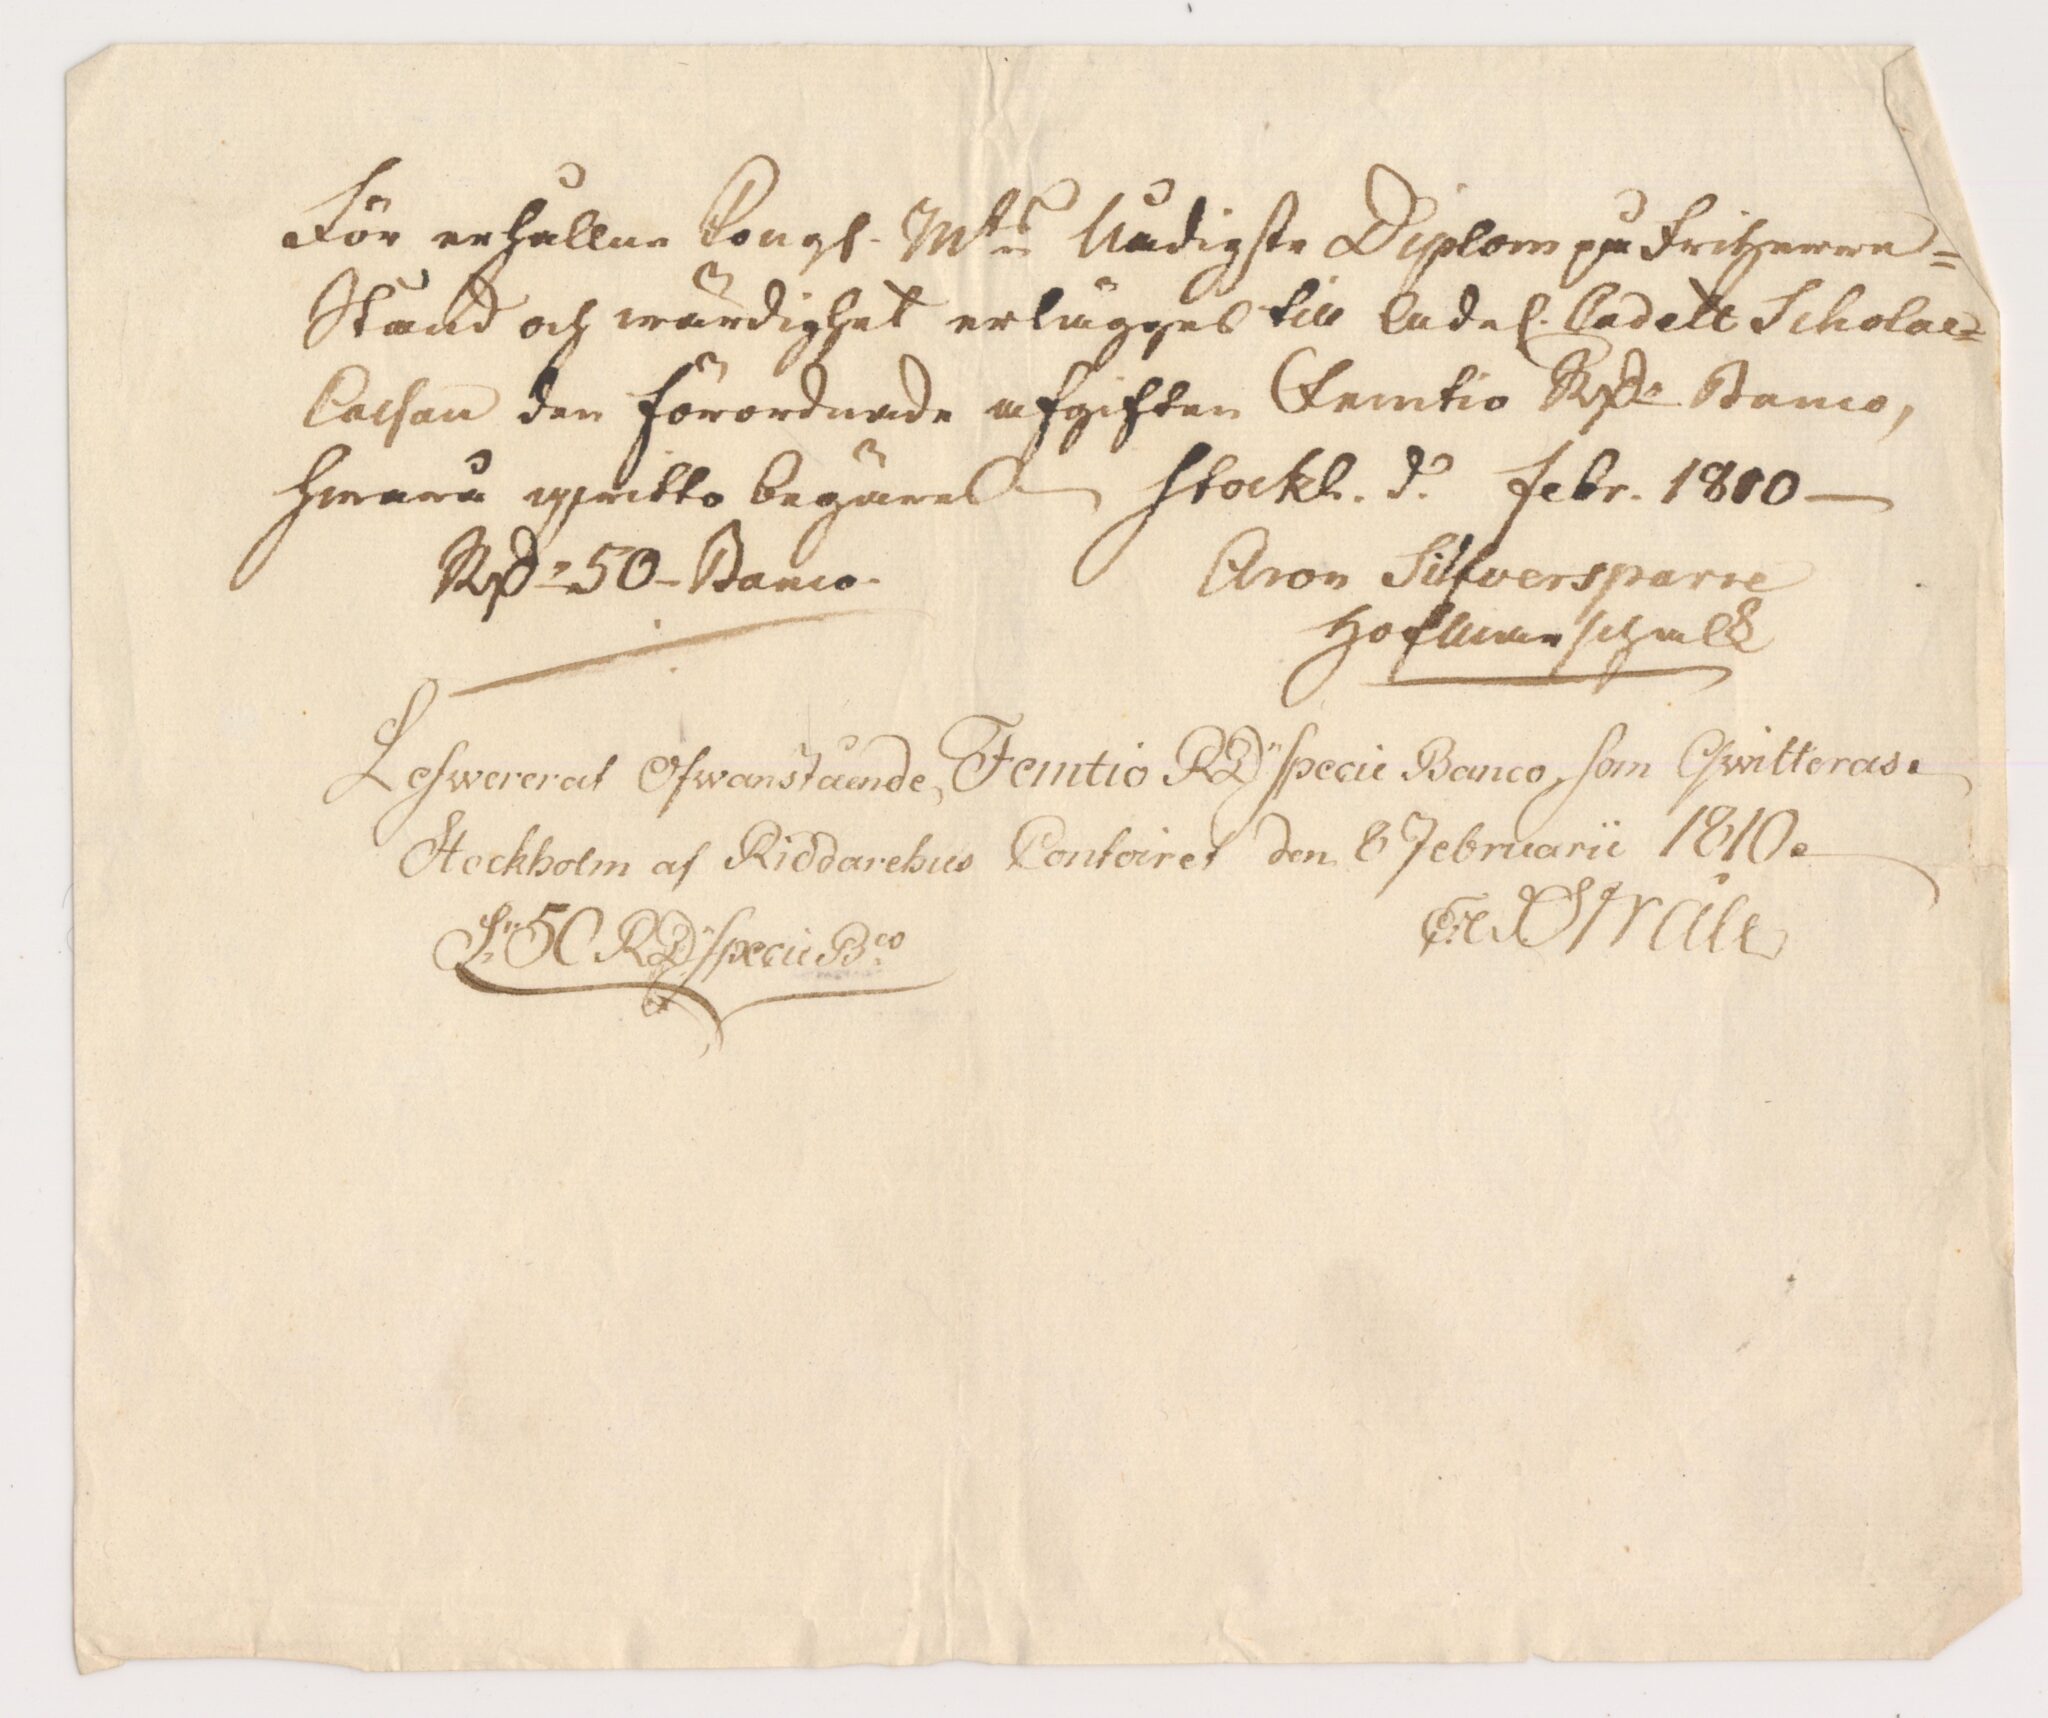 För erhållne Kongl. Mts Nådigste Diplom på Friherre=
Stånd och wärdighet erlägges till Adel. Cadett Scholæ=
Cassan den förordnade afgiften Femtio Rd Banco,
hwarå qvitto begäres Stockh. d. febr. 1810
Rd 50 Banco.
Aron Silfversparre
Hofmarschalk
Lefwererat Ofwanstående, Femtio RD specie Banco, som Qwitteras.
Stockholm af Riddarehus Contoiret den 8 Februarii 1810.
S. 50 RD specie Bco
Stråle